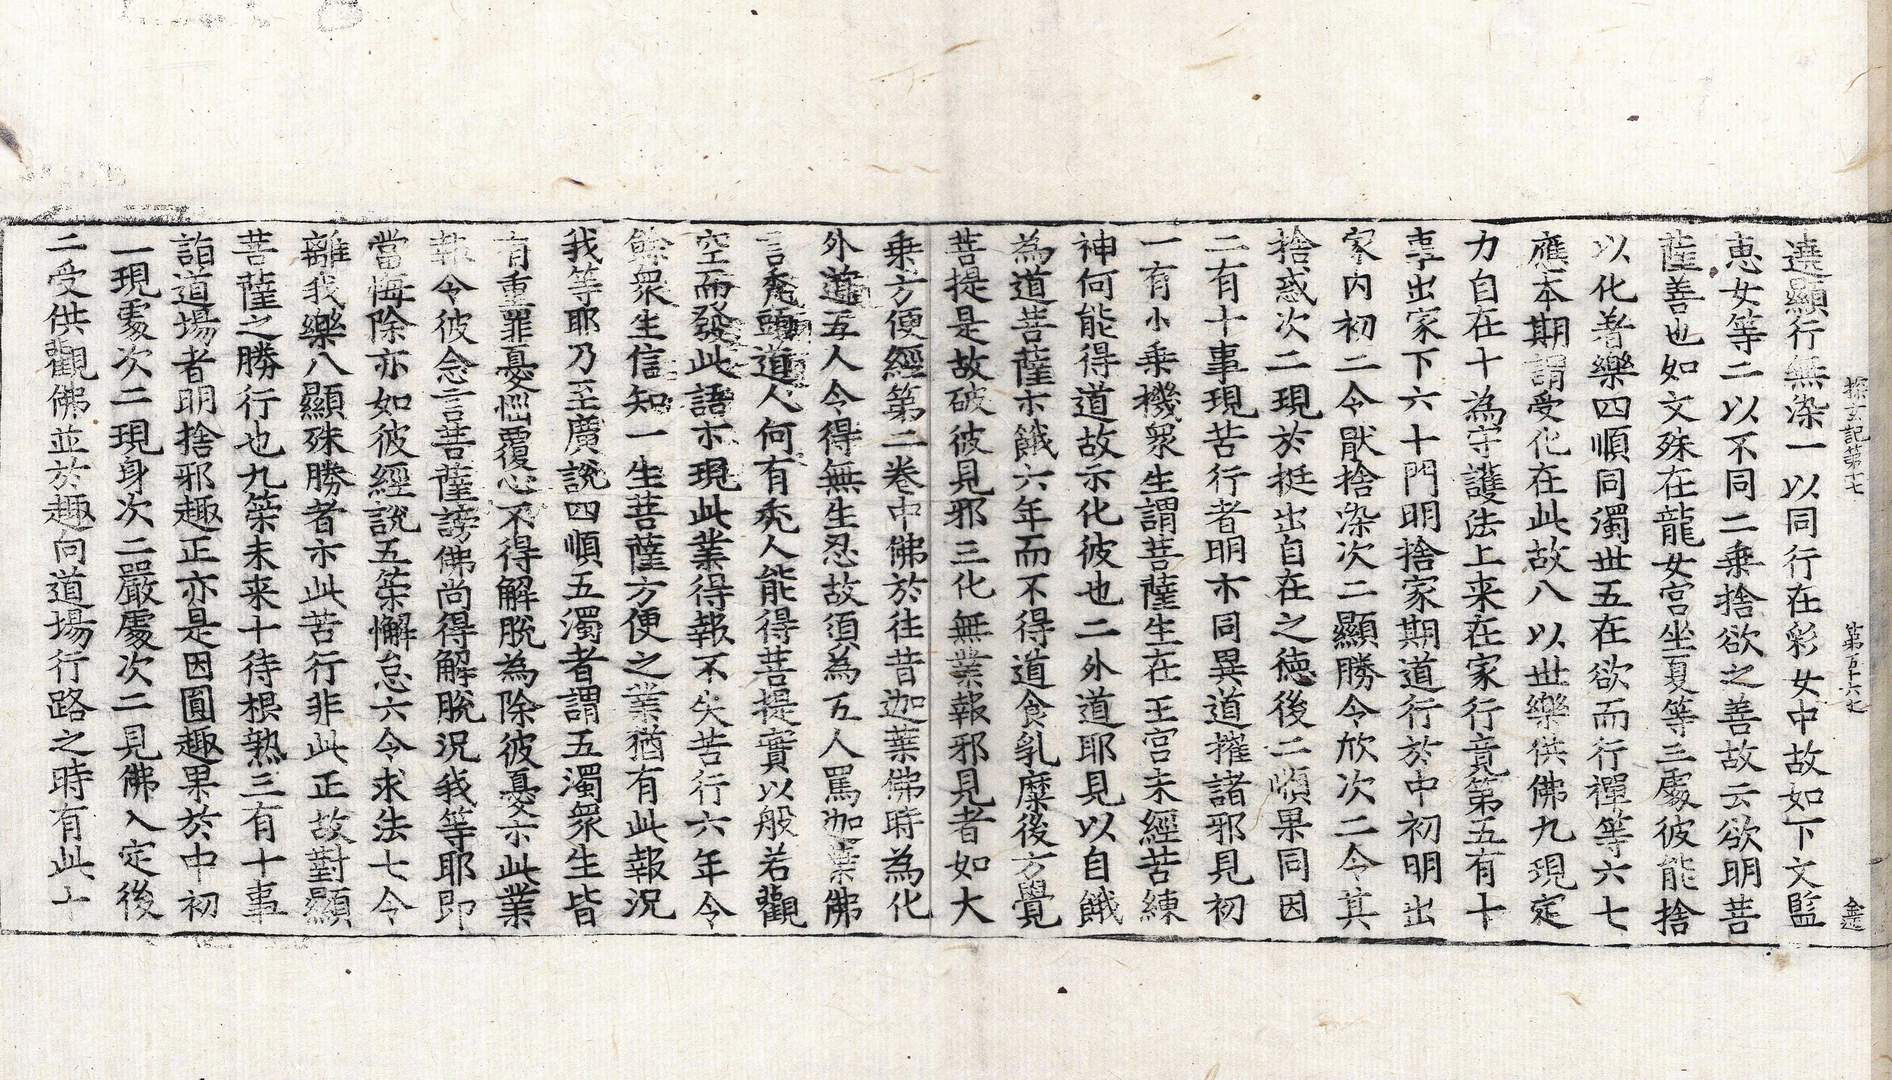 探玄記第十七　第百十六丈
遶顯行無染一以同行在彩女中故如下文監
恵女等二以不同二乗捨欲之善故云欲明菩
薩善也如文殊在龍女宮坐夏等三䖏彼能捨
以化著樂四順同濁世五在欲而行禪等六七
應本期謂受化在此故八以世樂供佛九現定
力自在十為守護法上来在家行竟第五有十
事出家下六十門明捨家期道行於中初明出
家内初二令猒捨染次二顯勝令欣次二令其
捨惑次二現於挺出自在之徳後二順果同因
二有十事現苦行者明亦同異道摧諸邪見初
一有小乗機衆生謂菩薩生在王宮未經苦練
神何能得道故示化彼也二外道耶見以自餓
為道菩薩亦餓六年而不得道食乳糜後方覺
菩提是故破彼見邪三化無業報邪見者如大
乗方便經第二卷中佛於往昔迦葉佛時為化
外道五人令得無生忍故須為五人罵迦葉佛
言禿頭道人何有禿人能得菩提實以般若觀
空而發此語亦現此業得報不失苦行六年令
餘衆生信知一生菩薩方便之業猶有此報況
我等耶乃至廣說四順五濁者謂五濁衆生皆
有重罪憂惱覆心不得解脫為除彼憂示此業
報令彼念言菩薩謗佛尚得解脫況我等耶即
當悔除亦如彼經說五策懈怠六令求法七令
離我樂八顯殊勝者亦此苦行非此正故對顯
菩薩之勝行也九策未来十待根熟三有十事
詣道場者明捨邪趣正亦是因圓趣果於中初
一現䖏次二現身次二嚴䖏次二見佛入定後
二受供觀佛並於趣向道場行路之時有此十